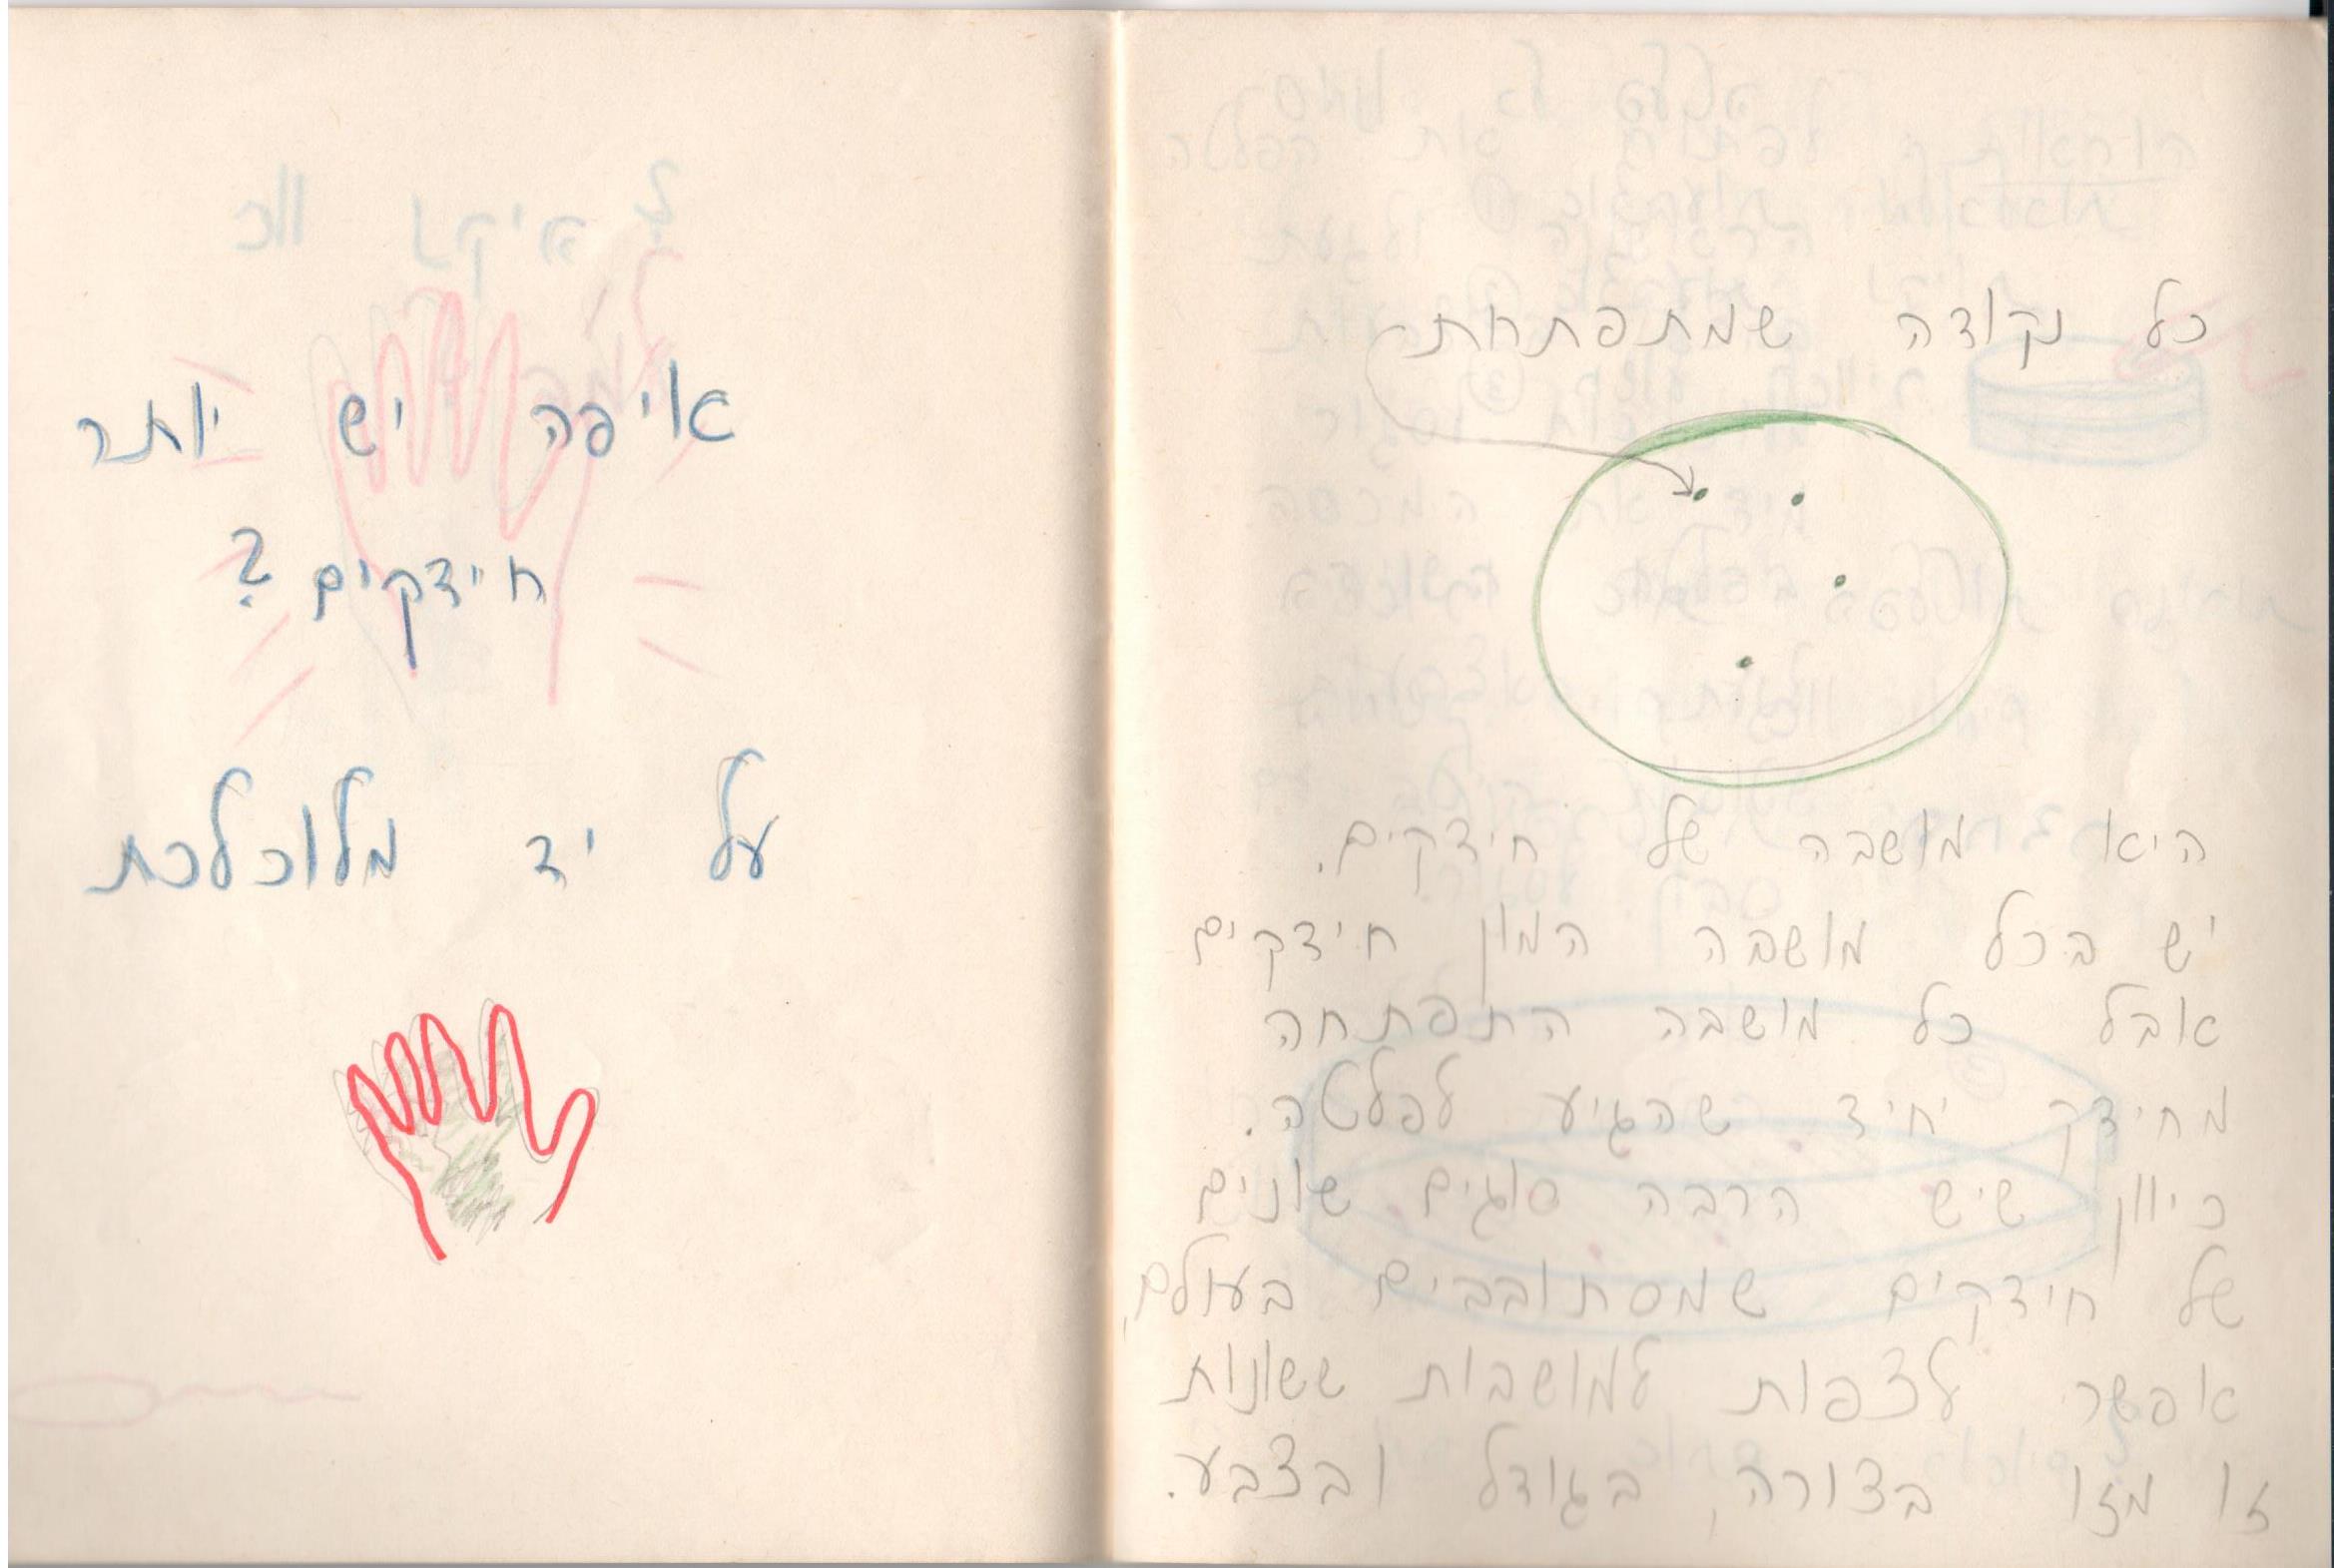 כל נקודה שמתפתחת
היא מושבה של חיידקים.
יש בכל מושבה המון חיידקים
אבל כל מושבה התפתחה
מחידק יחיד שהגיע לפלטה.
כיוון שיש הרבה סוגים שונים
של חידקים שמסתובבים בעולם,
אפשר לצפות למושבות ששונות
זו מזו בצורה, בגודל ובצבע.
איפה יש יותר
חיידקים?
על יד מלוכלכת